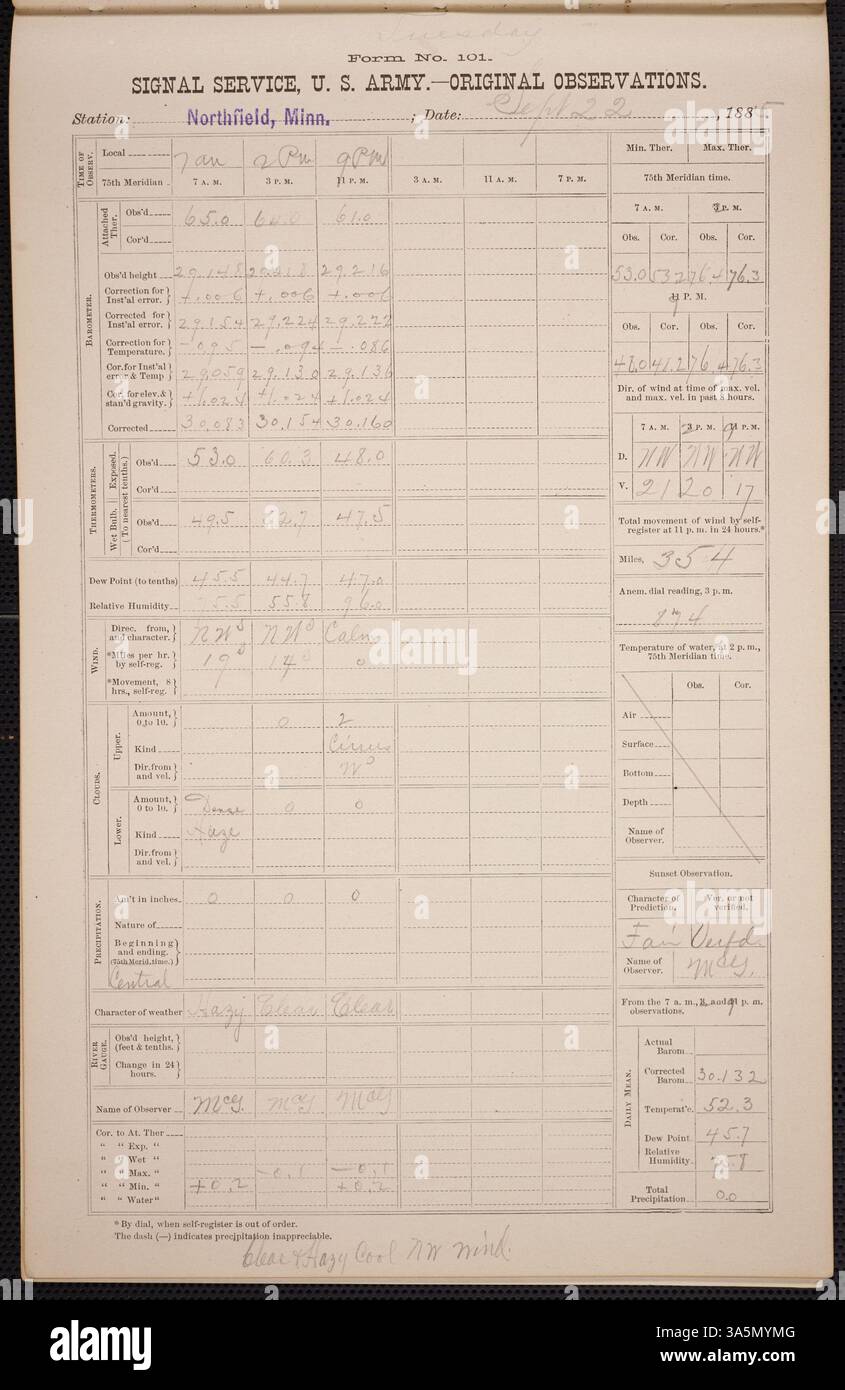 Tuesday
Form No. 101.
SIGNAL SERVICE, U. S. ARMY.—ORIGINAL OBSERVATIONS.
Station: Northfield, Minn. ; Date: Sept 22 , 1885
TIME OF OBSERV.
Local 7 am 2 Pm 9 PM
75th Meridian 7 A. M. 3 P. M. 11 P. M. 3 A. M. 11 A. M. 7 P. M.
BAROMETER.
Attached Ther.
Obs'd 65.0 61.0
Cor'd
Obs'd height 29.148 29.218 29.216
Correction for Inst'al error. +.006 +.006 +.006
Corrected for Inst'al error. 29.154 29.224 29.222
Correction for Temperature. -.095 -.094 -.086
Cor. for Inst'al error & Temp 29.059 29.130 29.136
Cor. for elev. & stan'd gravity. +1.024 +1.024 +1.024
Corrected 30.083 30.154 30.160
THERMOMETERS.
(To nearest tenths.)
Exposed.
Obs'd 53.0 60.3 48.0
Cor'd
Wet Bulb.
Obs'd 49.5 52.7 47.5
Cor'd
Dew Point (to tenths) 45.5 44.7 47.0
Relative Humidity 75.5 55.8 96.0
WIND.
Direc. from, and character. NW NW Calm
*Miles per hr. by self-reg. 19 14 0
*Movement, 8 hrs., self-reg.
CLOUDS.
Upper.
Amount, 0 to 10. 0 2
Kind Cirrus
Dir. from and vel. W
Lower.
Amount, 0 to 10. Dense 0 0
Kind Haze
Dir. from and vel.
PRECIPITATION.
Am't in inches. 0 0 0
Nature of
Beginning and ending. (75th Merid. time.)
Central
Character of weather Hazy Clear Clear
RIVER GAUGE.
Obs'd height, (feet & tenths.)
Change in 24 hours.
Name of Observer McG. McG McG
Cor. to At. Ther
" " Exp. "
" " Wet "
" " Max. " -0.1 -0.1
" " Min. " +0.2 +0.2
" " Water"
* By dial, when self-register is out of order.
The dash (—) indicates precipitation inappreciable.
Clear & Hazy Cool NW Wind.
Min. Ther. Max. Ther.
75th Meridian time.
7 A. M. 3 P. M.
Obs. Cor. Obs. Cor.
53.0 53.2 76.4 76.3
9
11 P. M.
Obs. Cor. Obs. Cor.
48.0 76.4 76.3
Dir. of wind at time of max. vel. and max. vel. in past 8 hours.
7 A. M. 3 P. M. 11 P. M.
2 9
D. NW NW NW
V. 21 20 17
Total movement of wind by self-register at 11 p. m. in 24 hours.*
Miles, 354
Anem. dial reading, 3 p. m.
874
Temperature of water, at 2 p. m., 75th Meridian time.
Obs. Cor.
Air
Surface
Bottom
Depth
Name of Observer.
Sunset Observation.
Character of Prediction. Ver. or not verified.
Fair Verfd.
Name of Observer. McG.
From the 7 a. m., 3, and 11 p. m. observations.
DAILY MEAN.
Actual Barom
Corrected Barom 30.132
Temperat'e. 52.3
Dew Point 45.7
Relative Humidity. 75.8
Total Precipitation 0.0
alamy
Image ID: 3A5MYMG
www.alamy.com